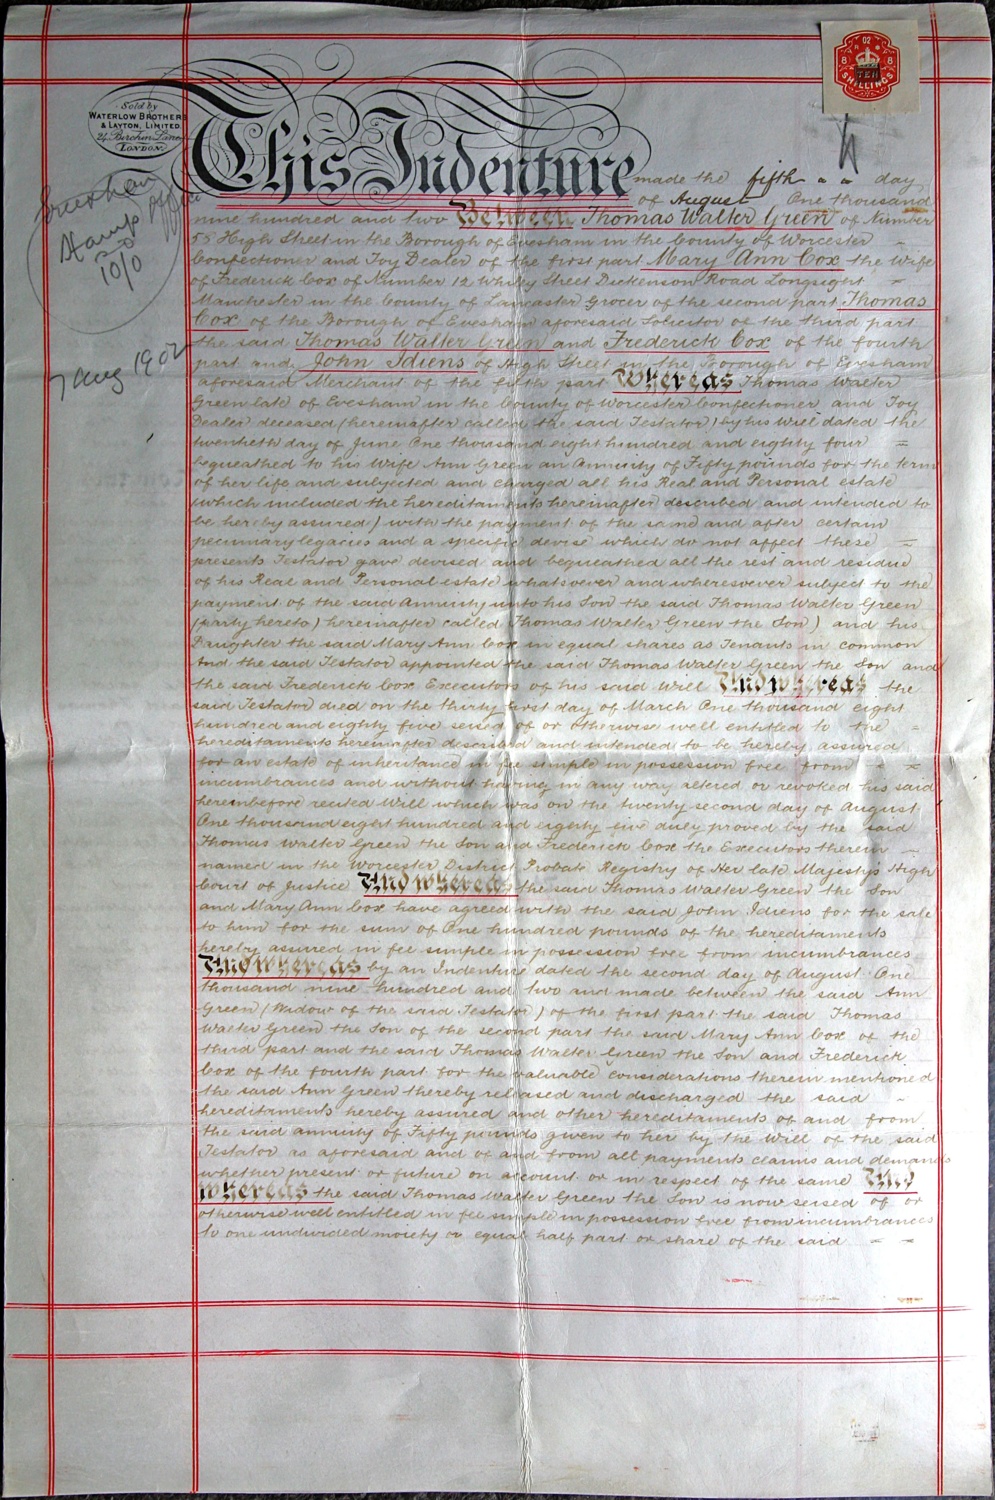 02
8 8
TEN
SHILLINGS
Sold by
WATERLOW BROTHERS
& LAYTON, LIMITED.
24, Birchin Lane,
LONDON.
Stamp Office
Stamp
10/0
7 Aug 1902
This Indenture made the fifth day
of August One thousand
nine hundred and two Between Thomas Walter Green of Number
55 High Street in the Borough of Evesham in the County of Worcester
Confectioner and Toy Dealer of the first part Mary Ann Cox the Wife
of Frederick Cox of Number 12 Whitby Street Dickenson Road Longsight
Manchester in the County of Lancaster Grocer of the second part Thomas
Cox of the Borough of Evesham aforesaid Solicitor of the third part
the said Thomas Walter Green and Frederick Cox of the fourth
part and John Idiens of High Street in the Borough of Evesham
aforesaid Merchant of the fifth part Whereas Thomas Walter
Green late of Evesham in the County of Worcester Confectioner and Toy
Dealer deceased (hereinafter called the said Testator) by his Will dated the
twentieth day of June One thousand eight hundred and eighty four =
bequeathed to his Wife Ann Green an Annuity of Fifty pounds for the term
of her life and subjected and charged all his Real and Personal estate
(which included the hereditaments hereinafter described and intended to
be hereby assured) with the payment of the same and after certain
pecuniary legacies and a specific devise which do not affect these =
presents Testator gave devised and bequeathed all the rest and residue
of his Real and Personal estate whatsoever and wheresoever subject to the
payment of the said Annuity unto his Son the said Thomas Walter Green
(party hereto) hereinafter called Thomas Walter Green the Son) and his
Daughter the said Mary Ann Cox in equal shares as Tenants in common
And the said Testator appointed the said Thomas Walter Green the Son and
the said Frederick Cox Executors of his said Will And whereas the
said Testator died on the thirty first day of March One thousand eight
hundred and eighty five seised of or otherwise well entitled to the =
hereditaments hereinafter described and intended to be hereby assured
for an estate of inheritance in fee simple in possession free from
incumbrances and without having in any way altered or revoked his said
hereinbefore recited Will which was on the twenty second day of August
One thousand eight hundred and eighty five duly proved by the said
Thomas Walter Green the Son and Frederick Cox the Executors therein
named in the Worcester District Probate Registry of Her late Majesty's High
Court of Justice And whereas the said Thomas Walter Green the Son
and Mary Ann Cox have agreed with the said John Idiens for the sale
to him for the sum of One hundred pounds of the hereditaments
hereby assured in fee simple in possession free from incumbrances
And whereas by an Indenture dated the second day of August One
thousand nine hundred and two and made between the said Ann
Green (Widow of the said Testator) of the first part the said Thomas
Walter Green the Son of the second part the said Mary Ann Cox of the
third part and the said Thomas Walter Green the Son and Frederick
Cox of the fourth part for the valuable considerations therein mentioned
the said Ann Green thereby released and discharged the said
hereditaments hereby assured and other hereditaments of and from
the said annuity of Fifty pounds given to her by the Will of the said
Testator as aforesaid and of and from all payments claims and demands
whether present or future on account or in respect of the same And
whereas the said Thomas Walter Green the Son is now seised of or
otherwise well entitled in fee simple in possession free from incumbrances
to one undivided moiety or equal half part or share of the said